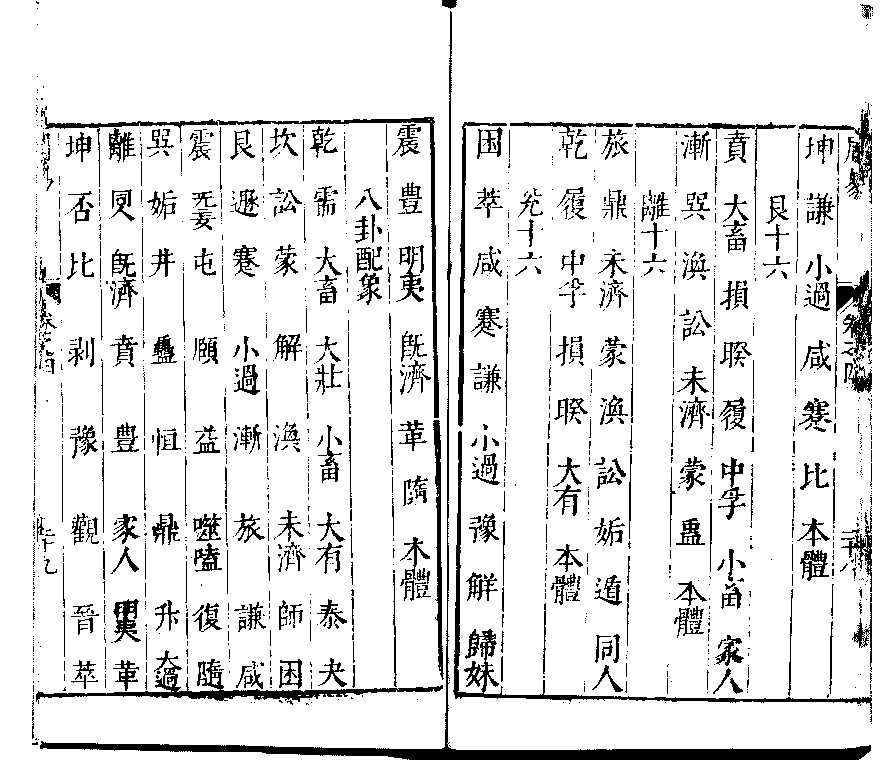 坤 謙 小過 咸 蹇 比 本體
艮十六
賁 大畜 損 睽 履 中孚 小畜 家人
漸 巽 渙 訟 未濟 蒙 蠱 本體
離十六
旅 鼎 未濟 蒙 渙 訟 姤 遁 同人
乾 履 中孚 損 睽 大有 本體
兌十六
困 萃 咸 蹇 謙 小過 豫 解 歸妹
震 豊 明夷 旣濟 革 隋 本體
八卦配象
乾 需 大畜 大壯 小畜 大有 泰 夬
坎 訟 蒙 解 渙 未濟 師 困
艮 遯 蹇 小過 漸 旅 謙 咸
震 无妄 屯 頤 益 噬嗑 復 隨
巽 姤 井 蠱 恒 鼎 升 大過
離 同人 旣濟 賁 豊 家人 明夷 革
坤 否 比 剥 豫 觀 晉 萃
二十九